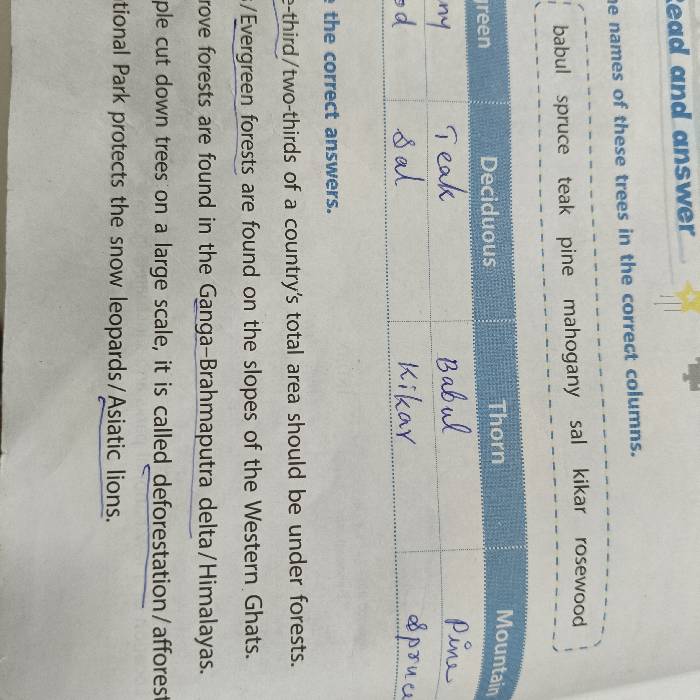 Read and answer
names of these trees in the correct columns.
babul spruce teak pine mahogany sal kikar rosewood
Deciduous Thorn Mountain
Teak Babul Pine
Sal Kikar Spruce
the correct answers.
third/two-thirds of a country's total area should be under forests.
/Evergreen forests are found on the slopes of the Western Ghats.
forests are found in the Ganga–Brahmaputra delta/Himalayas.
cut down trees on a large scale, it is called deforestation/afforest
Park protects the snow leopards/Asiatic lions.